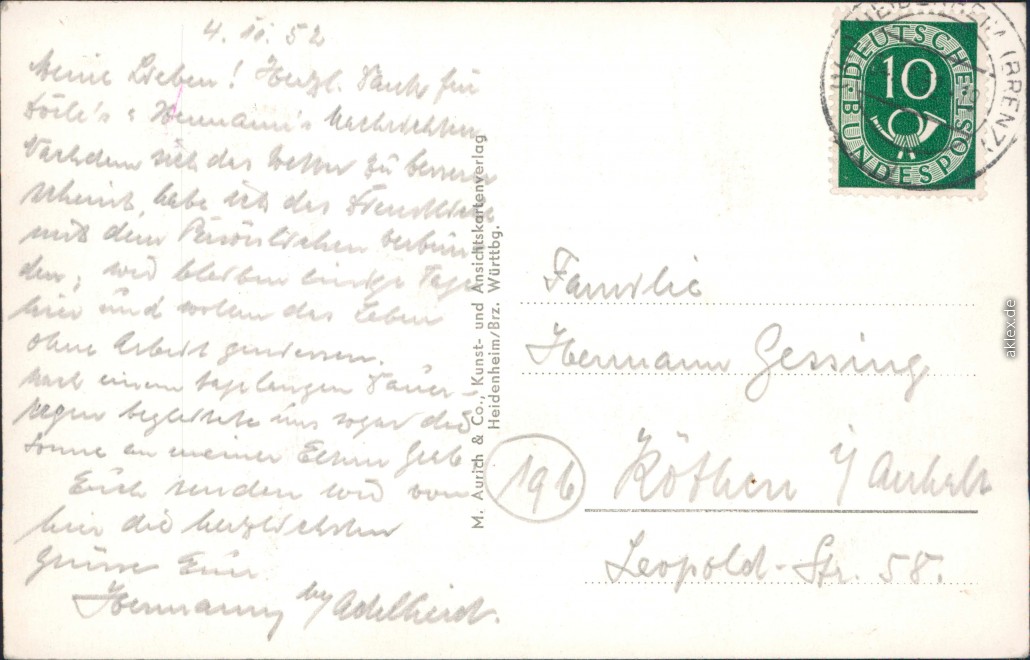 4. 52
Meine Lieben! Herzl. Dank für
Hermann's Nachrichten
Nachdem sich das Wetter zu bessern
scheint, habe ich das Dienstliche
mit dem Persönlichen verbun-
den; wir bleiben einige Tage
hier und wollen das Leben
ohne Arbeit geniessen.
Nach einem tagelangen Dauer-
regen begleitete uns sogar die
Sonne an meiner
Euch senden wir von
hier die herzlichsten
Grüsse Eure
Hermann Adelheid.
M. Aurich & Co., Kunst- und Ansichtskartenverlag
Heidenheim/Brz. Württbg.
HEIDENHEIM (BRENZ)
DEUTSCHE
BUNDESPOST
10
Familie
Hermann Gessing
19b
Köthen i/Anhalt
Leopold-Str. 58.
aklex.de